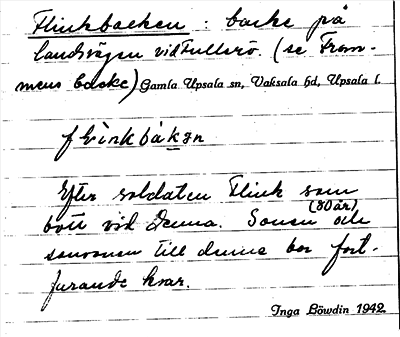 Flinkbacken : backe på
landsvägen vid Fullerö. (se From-
mens backe) Gamla Upsala sn, Vaksala hd, Upsala l.
flìnkbákən
Efter soldaten Flink som
bott vid denna. Sonen (80 år) och
sonsonen till denne bor fort-
farande kvar.
Inga Löwdin 1942.